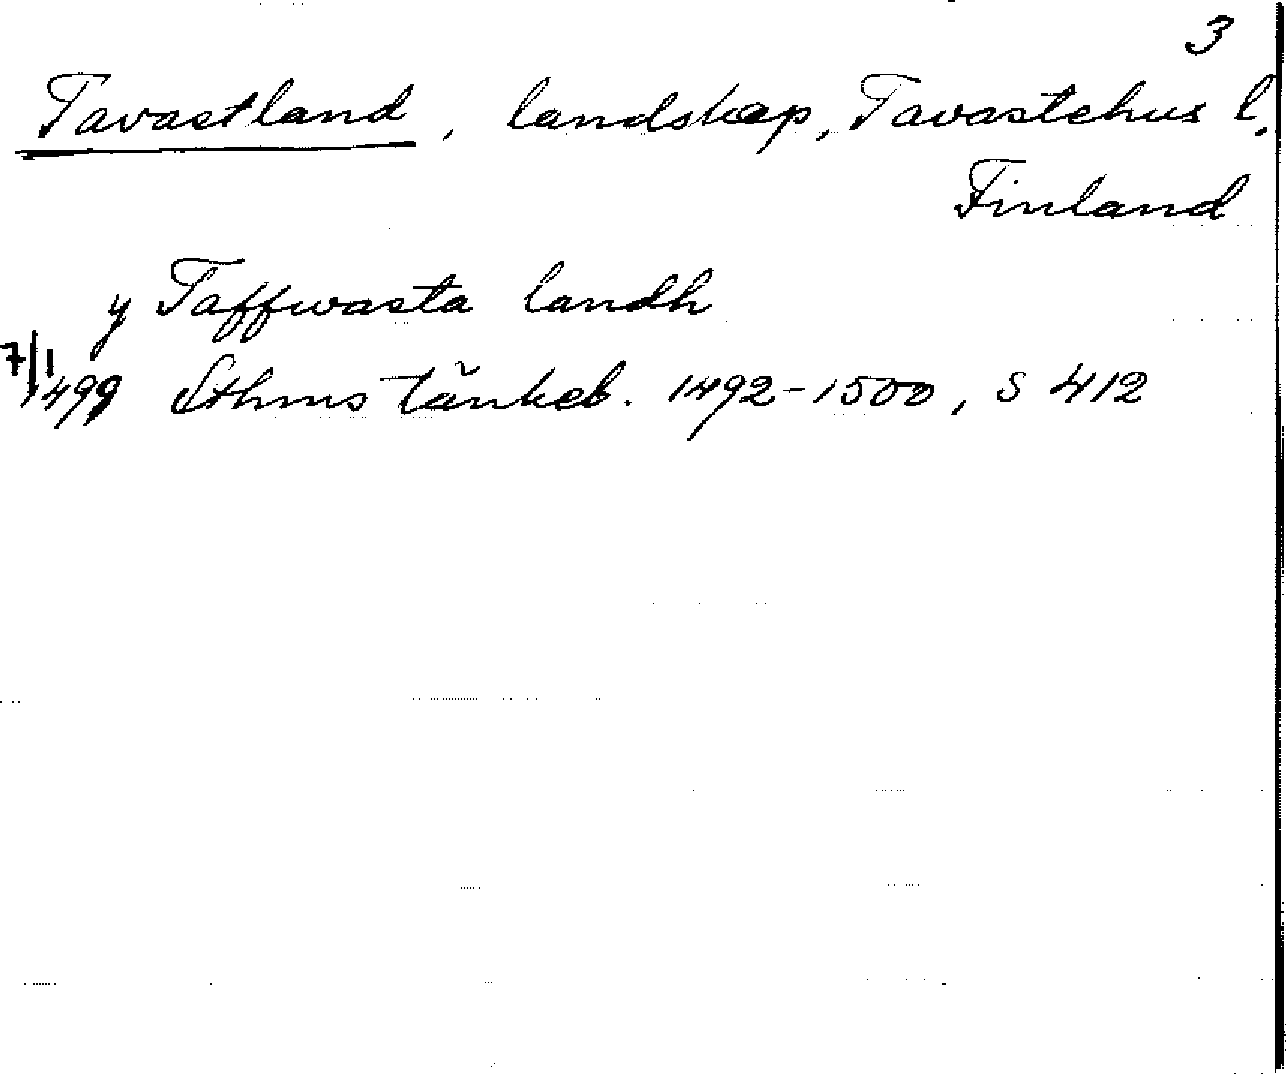 3
Tavastland, landskap, Tavastehus l.
Finland
y Taffwasta landh
7/1 1499 Sthms tänkeb. 1492-1500, s 412